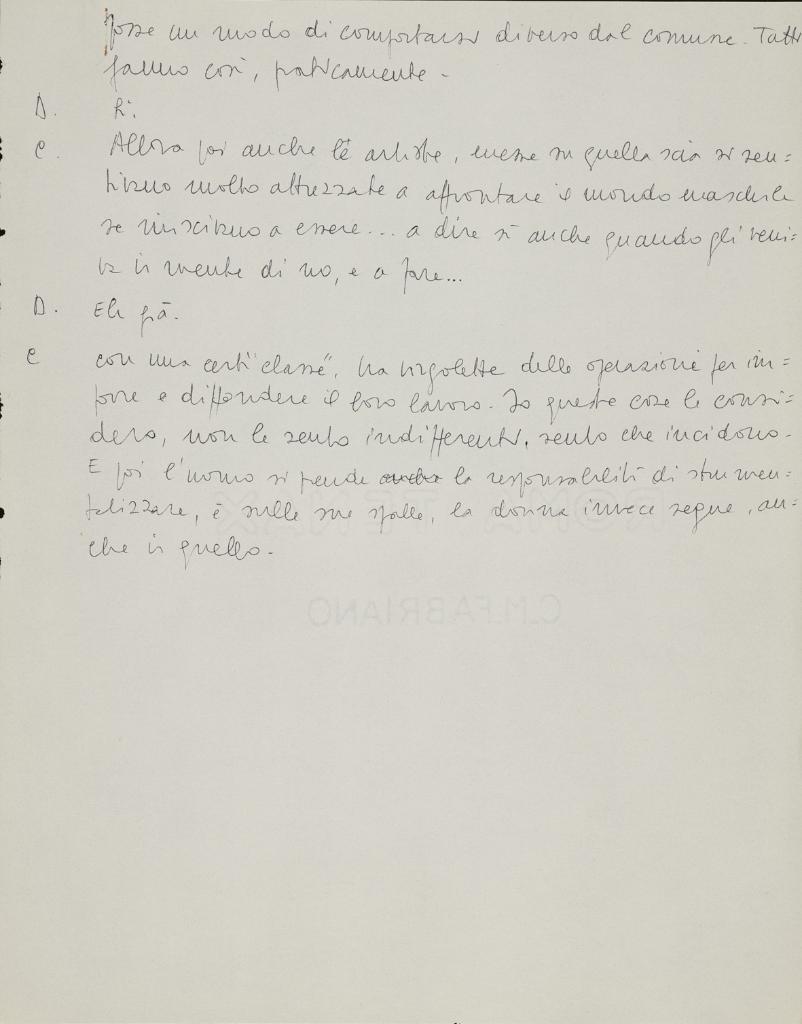 fosse un modo di comportarsi diverso dal comune. Tutti
fanno così, praticamente -
D. Sì.
C. Allora poi anche le artiste, messe su quella scia si sen=
tivano molto attrezzate a affrontare il mondo maschile
se riuscivano a essere... a dire sì anche quando gli veni=
va in mente di no, e a fare...
D. Eh già.
C con una certa "classe", tra virgolette delle operazioni per im=
porre e diffondere il loro lavoro. Io queste cose le consi=
dero, non le sento indifferenti, sento che incidono.
E poi l'uomo si prende anche la responsabilità di strumen=
talizzare, è sulle sue spalle, la donna invece segue, an=
che in quello.
C.M.FABRIANO